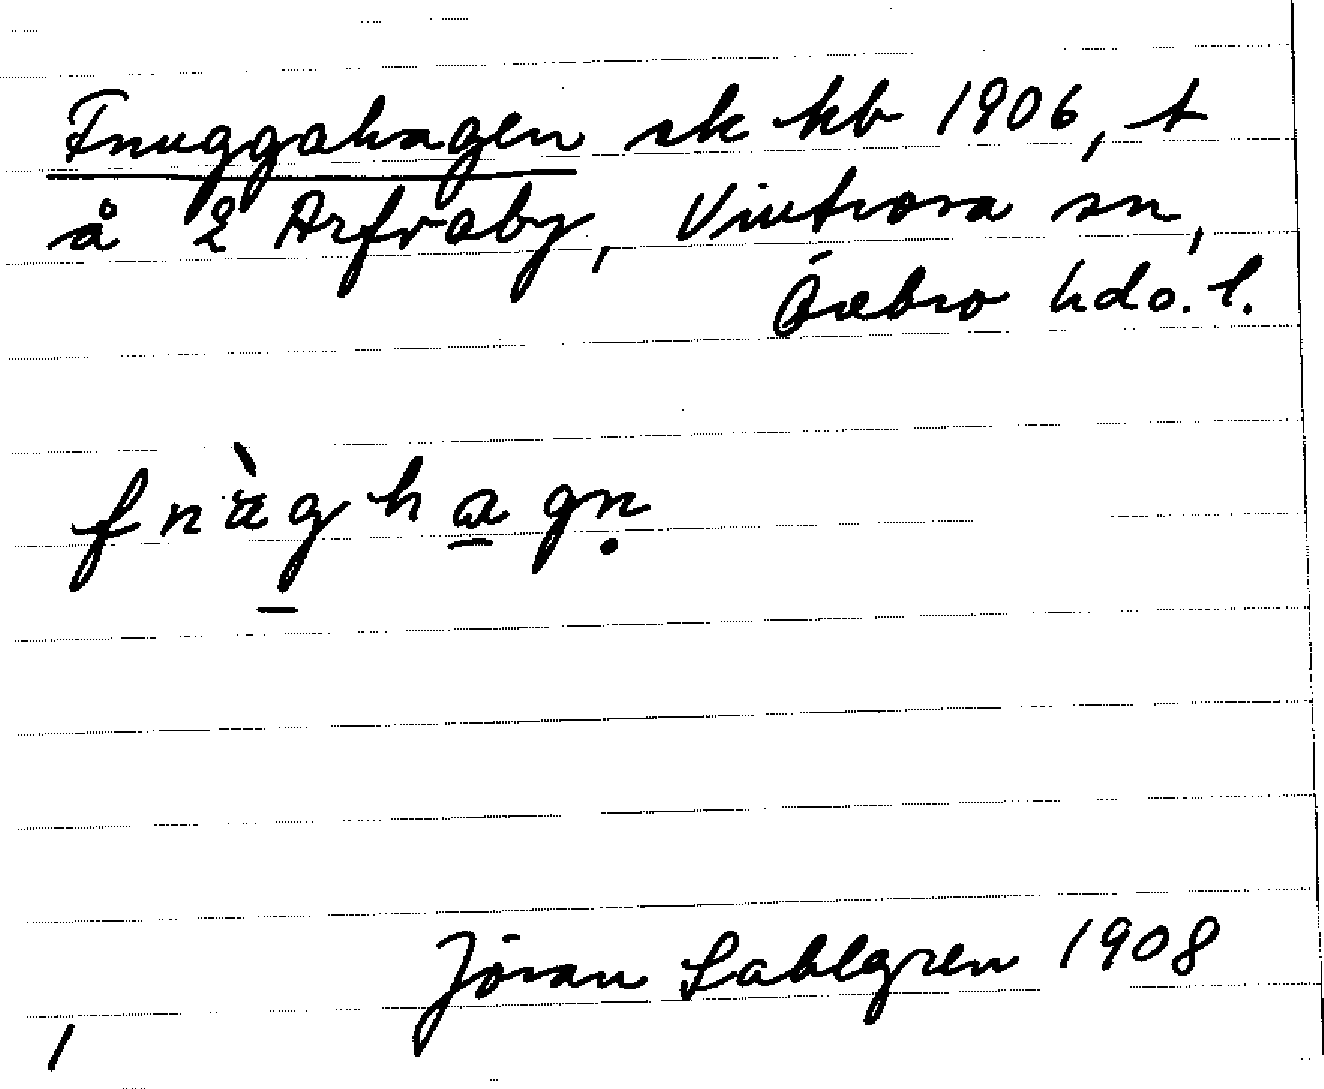 Fnuggahagen sk kb 1906, t
å 2 Arfvaby, Vintrosa sn,
Örebro hd o. l.
fnàghagṇ
Jöran Sahlgren 1908
1